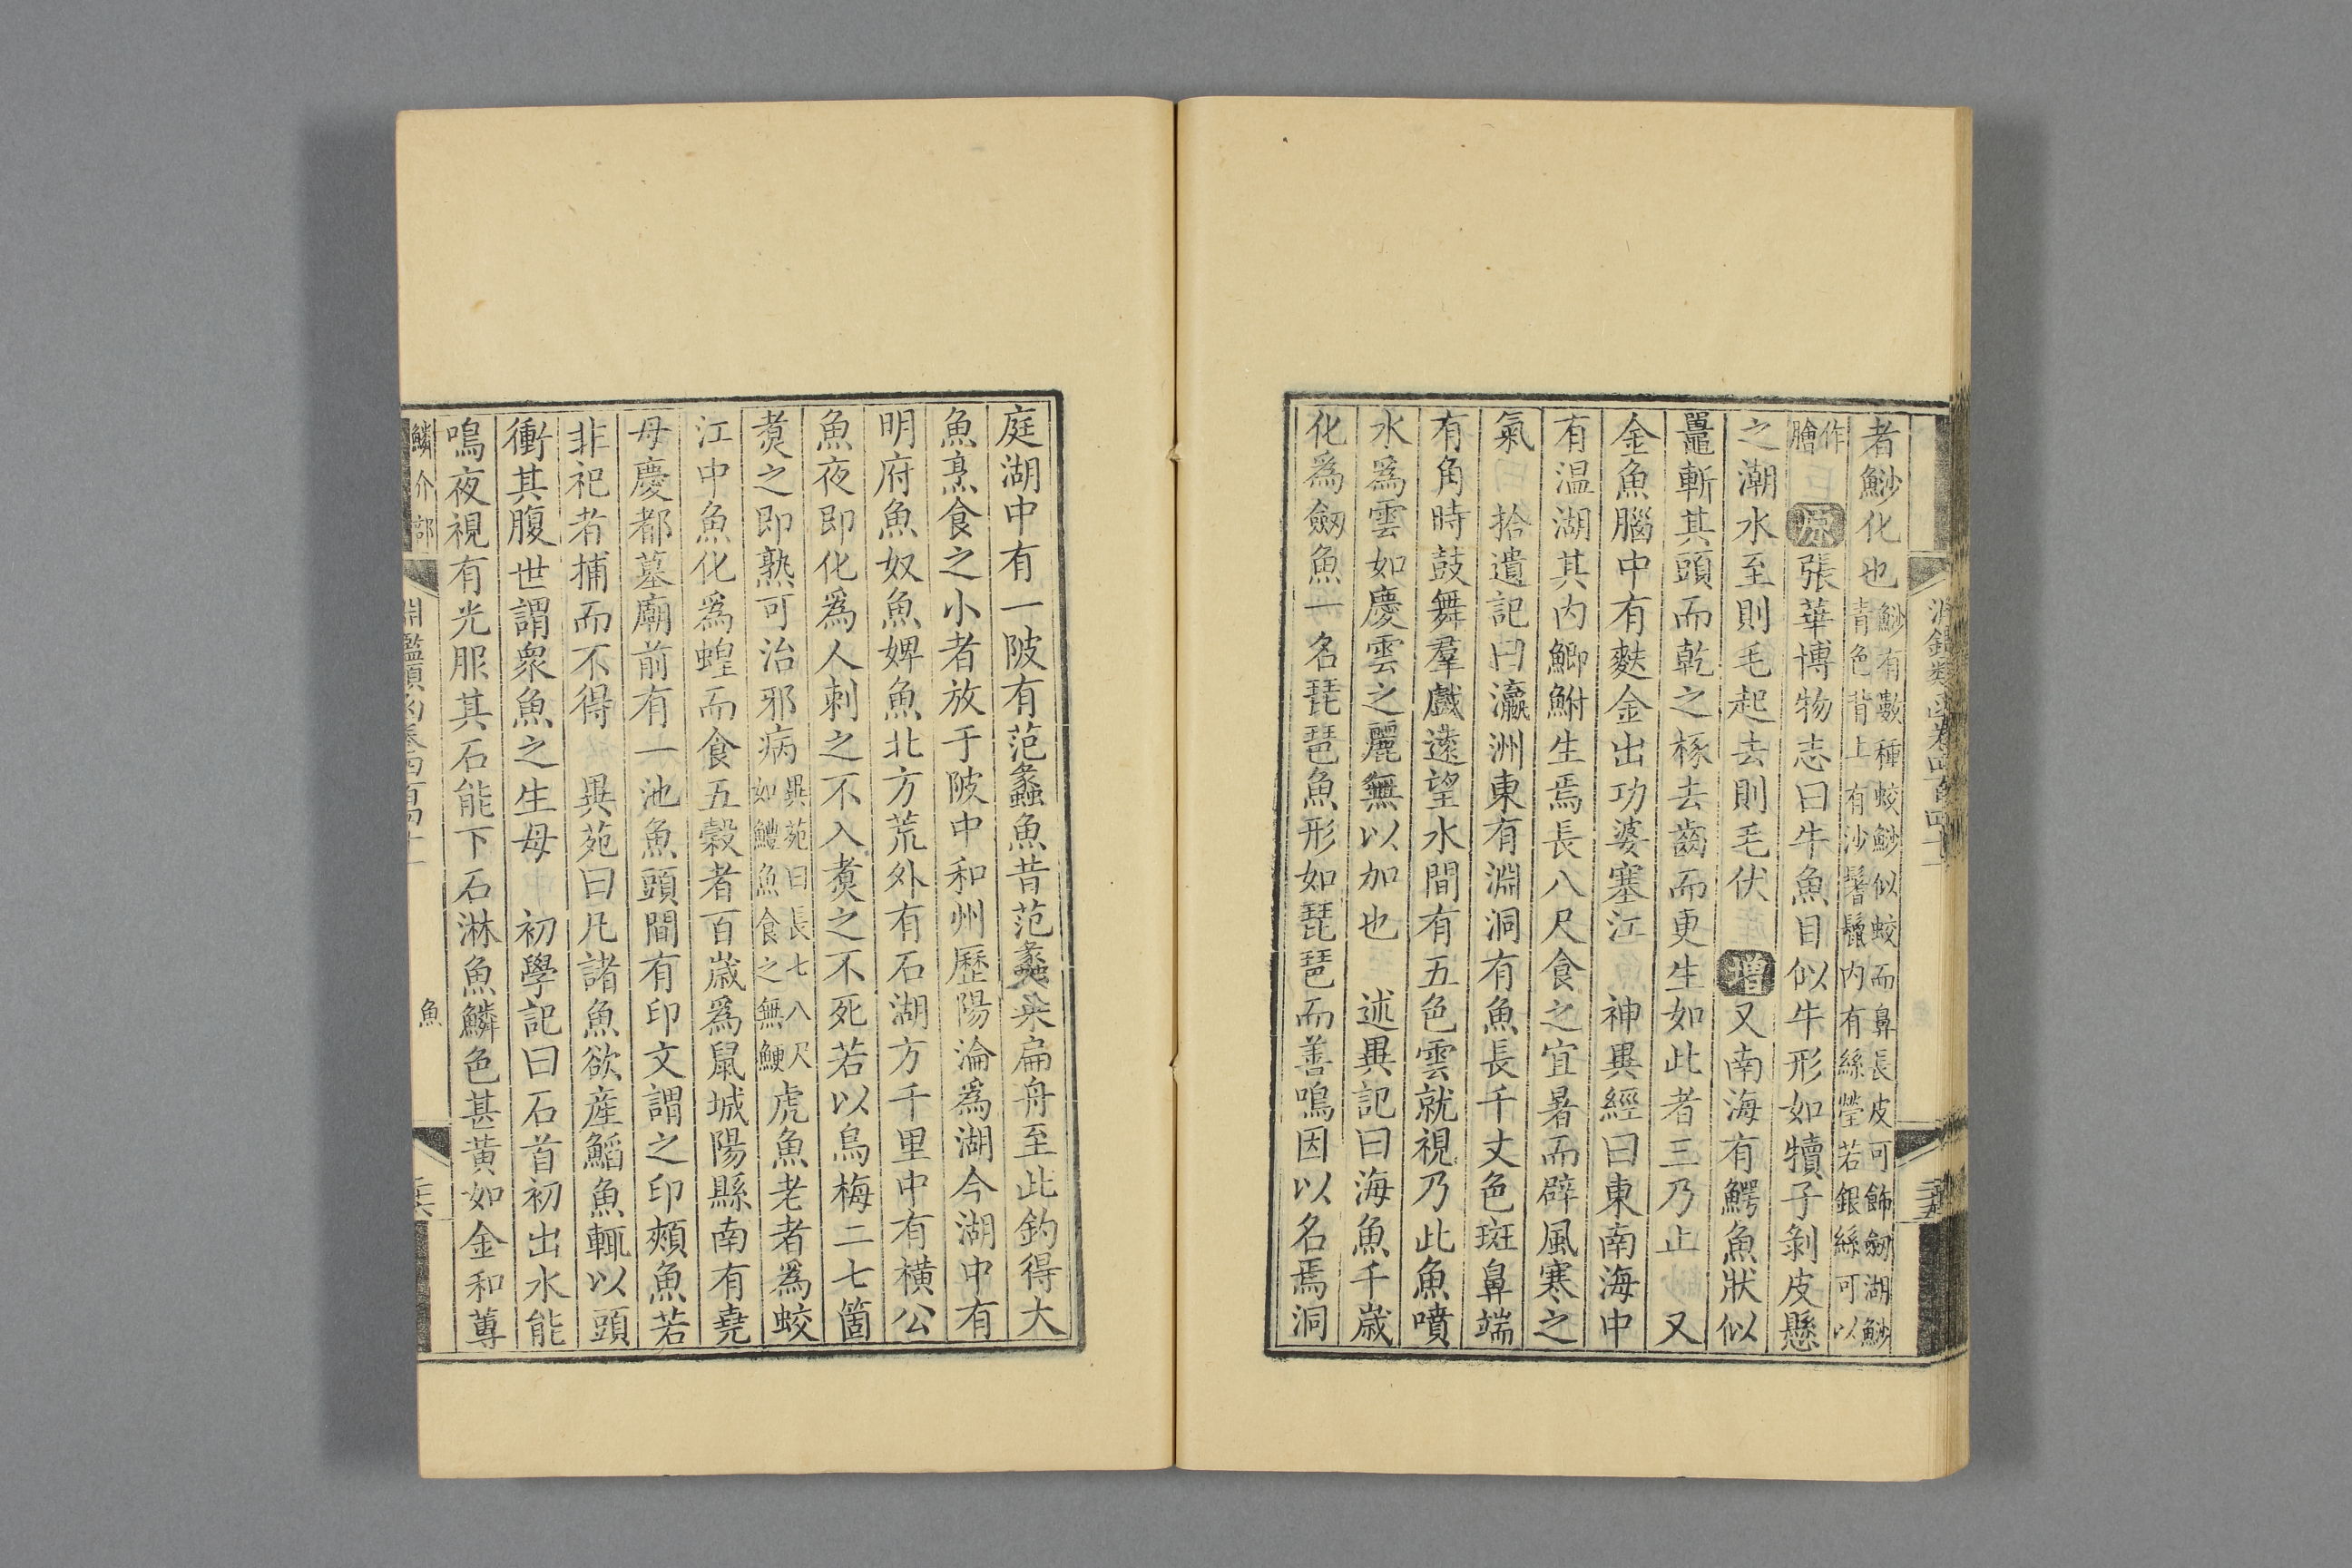 淵鑑類函卷四百四十一
者魦化也魦有數種蛟魦似蛟而鼻長皮可飾劒湖魦青色背上有沙鬐鬣内有絲瑩若銀絲可以
作膾 原張華博物志曰牛魚目似牛形如犢子剝皮懸
之潮水至則毛起去則毛伏 增又南海有鰐魚狀似
鼉斬其頭而乾之椓去齒而更生如此者三乃止 又
金魚腦中有麩金出功婆塞江 神異經曰東南海中
有温湖其内鯽鮒生焉長八尺食之宜暑而辟風寒之
氣 拾遺記曰瀛洲東有淵洞有魚長千丈色斑鼻端
有角時鼓舞羣戲遠望水間有五色雲就視乃此魚噴
水爲雲如慶雲之麗無以加也 述異記曰海魚千歲
化爲劒魚一名琵琶魚形如琵琶而善鳴因以名焉洞
庭湖中有一陂有范蠡魚昔范蠡乘扁舟至此釣得大
魚烹食之小者放于陂中和州歷陽淪爲湖今湖中有
明府魚奴魚婢魚北方荒外有石湖方千里中有横公
魚夜即化爲人刺之不入煑之不死若以烏梅二七箇
煑之即熟可治邪病異苑曰長七八尺如鱧魚食之無鯁虎魚老者爲蛟
江中魚化爲蝗而食五穀者百歲爲鼠城陽縣南有堯
母慶都墓廟前有一池魚頭間有印文謂之印頰魚若
非祀者捕而不得 異苑曰凡諸魚欲産䱜魚輒以頭
衝其腹世謂衆魚之生母 初學記曰石首初出水能
鳴夜視有光服其石能下石淋魚鱗色甚黄如金和蓴
鱗介部 淵鑑類函卷四百四十一 魚 二十六